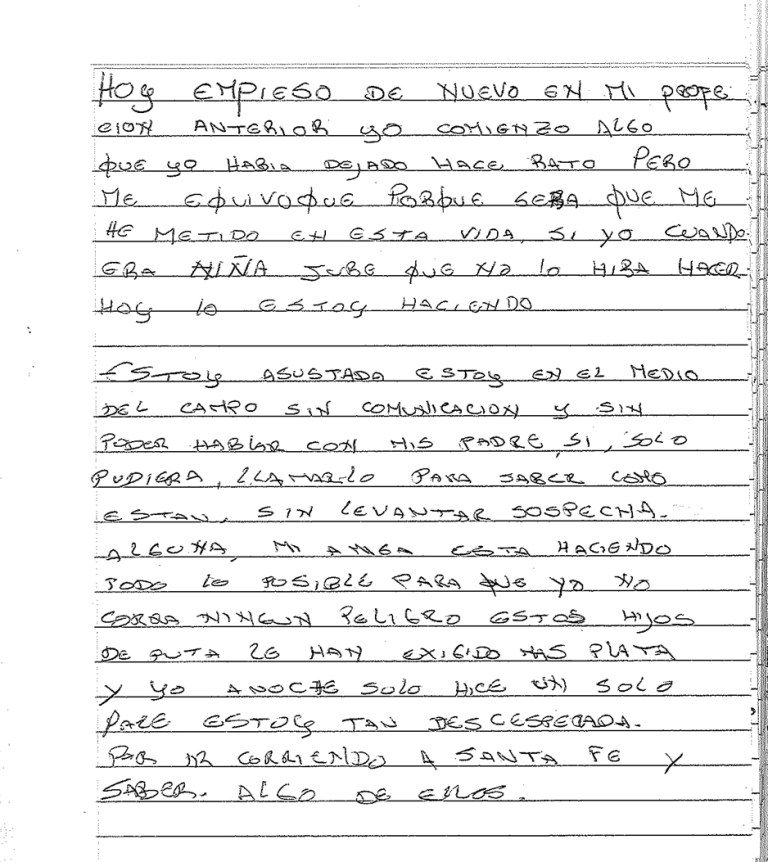 HOY EMPIESO DE NUEVO EN MI PROFE
CION ANTERIOR YO COMIENZO ALGO
QUE YO HABIA DEJADO HACE RATO PERO
ME EQUIVOQUE PORQUE SERA QUE ME
HE METIDO EN ESTA VIDA, SI YO CUANDO
ERA NIÑA JURE QUE NO LO HIBA HACER
HOY LO ESTOY HACIENDO
ESTOY ASUSTADA ESTOY EN EL MEDIO
DEL CAMPO SIN COMUNICACION Y SIN
PODER HABLAR CON MIS PADRE, SI, SOLO
PUDIERA, LLAMARLO PARA SABER COMO
ESTAN, SIN LEVANTAR SOSPECHA.
ALGUNA, MI AMIGA ESTA HACIENDO
TODO LO POSIBLE PARA QUE YO NO
CORRA NINGUN PELIGRO ESTOS HIJOS
DE PUTA LE HAN EXIGIDO MAS PLATA
Y YO ANOCHE SOLO HICE UN SOLO
PACE ESTOY TAN DESCESPERADA.
POR IR CORRIENDO A SANTA FE Y
SABER. ALGO DE ELLOS.